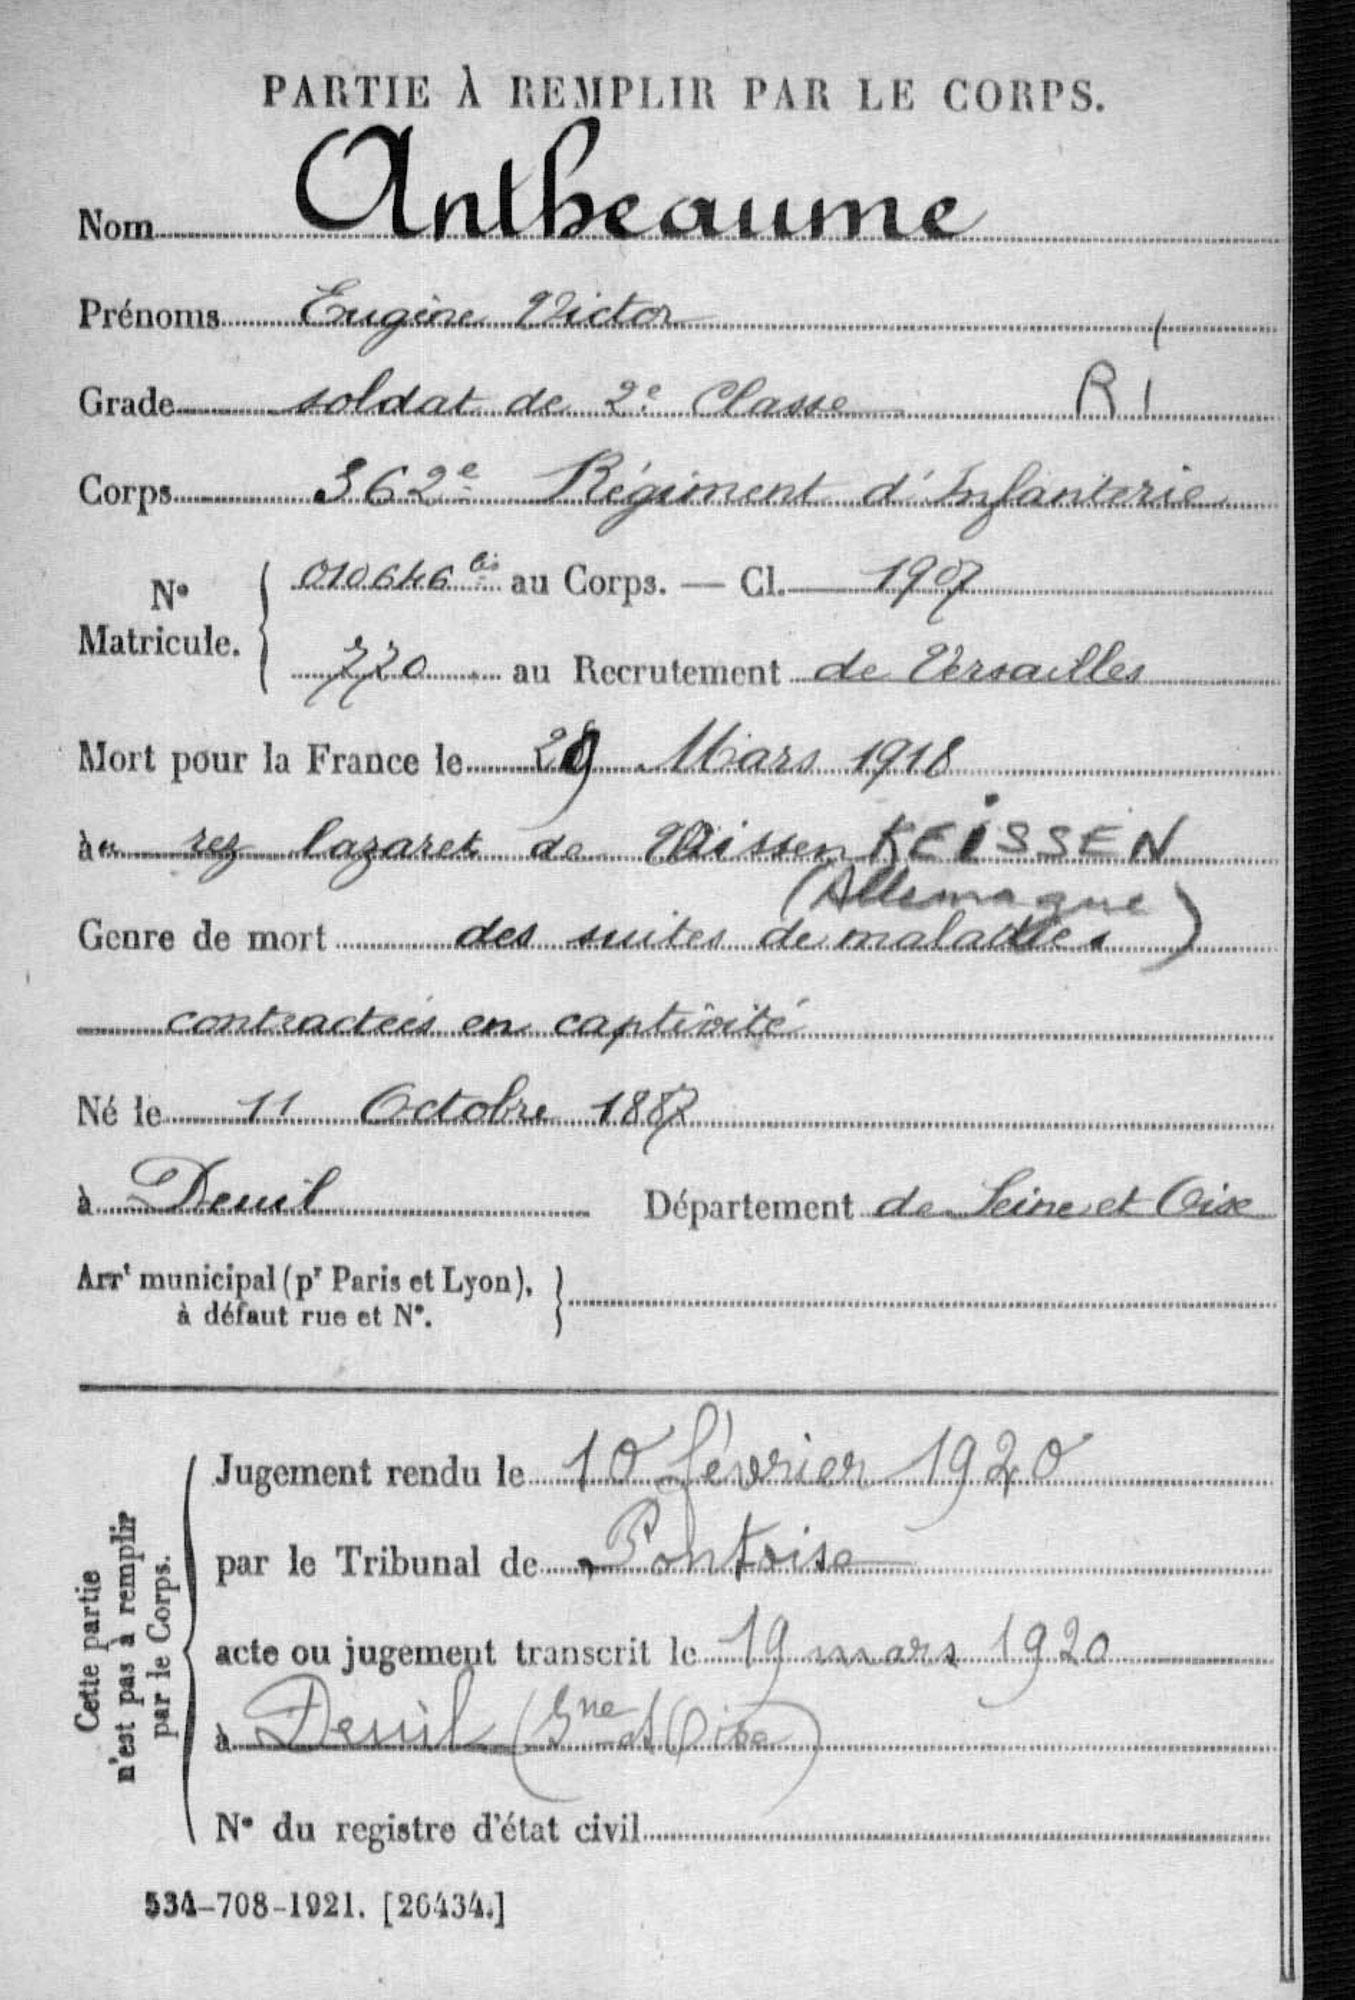 PARTIE À REMPLIR PAR LE CORPS.
Nom Antheaume
Prénoms Eugène Victor
Grade soldat de 2e Classe R I
Corps 362e Régiment d'Infanterie
N° Matricule. 010646 bis au Corps. — Cl. 1907
770 au Recrutement de Versailles
Mort pour la France le 29 Mars 1918
à rez lazaret de KEISSEN
(Allemagne)
Genre de mort des suites de maladies
contractées en captivité
Né le 11 Octobre 1887
à Deuil Département de Seine et Oise
Arrt municipal (pr Paris et Lyon),
à défaut rue et N°.
Cette partie
n'est pas à remplir
par le Corps.
Jugement rendu le 10 février 1920
par le Tribunal de Pontoise
acte ou jugement transcrit le 19 mars 1920
à Deuil (Sne et Oise)
N° du registre d'état civil
534-708-1921. [26434.]